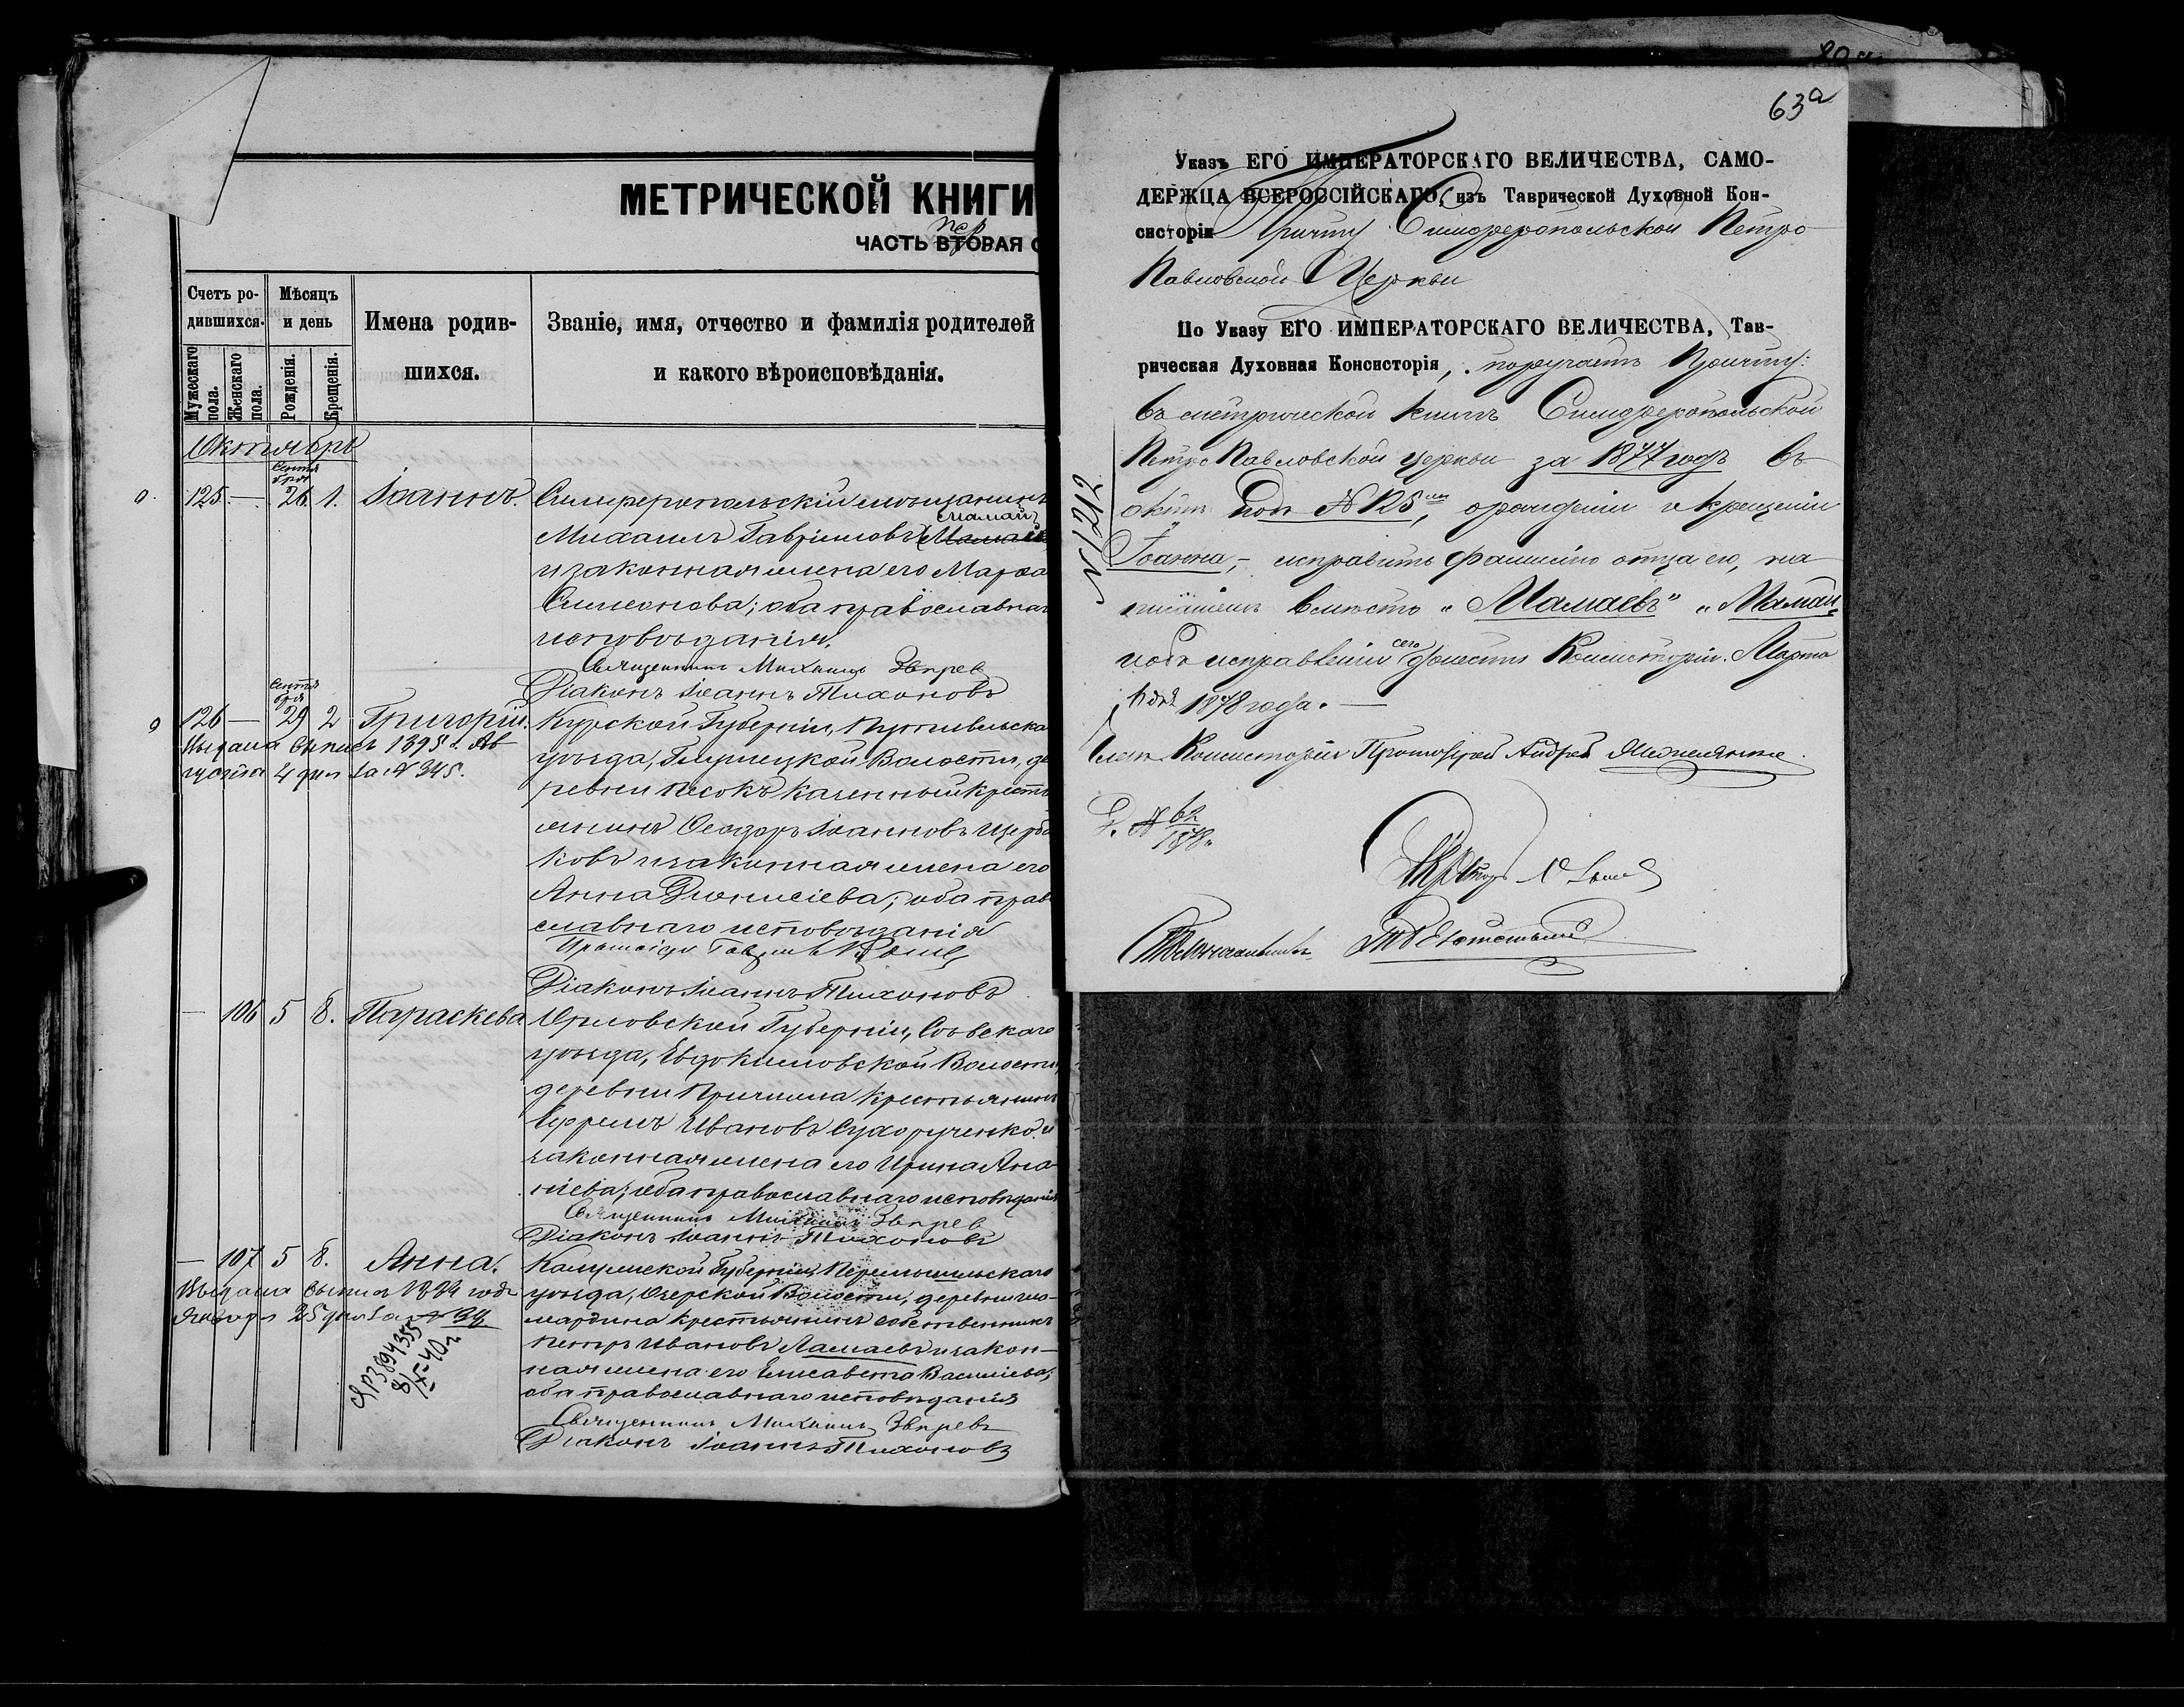 МЕТРИЧЕСКОЙ КНИГИ
пер
ЧАСТЬ ВТОРАЯ О
Счетъ ро-
дившихся.
Мужескаго пола.
Женскаго пола.
Мѣсяцъ
и день
Рожденія.
Крещенія.
Имена родив-
шихся.
Званіе, имя, отчество и фамилія родителей
и какого вѣроисповѣданія.
Октябрь
Сентя
бря
125 — 26 1. Іоаннъ.
Симферопольскій мѣщанинъ
Мамай
Михаилъ Гавріиловъ Мамаевъ
и законная жена его Марѳа
Симеонова; оба православнаг
исповѣданія.
Священникъ Михаилъ Звѣрев
Діаконъ Іоаннъ Тихоновъ
Сентя
бря
126 — 29 2 Григорій.
Выдана выпись 1895 г. Ав
густа 4 дня за № 345.
Курской Губерніи, Путивльска
уѣзда, Волости, де
ревни Песокъ казенный кресть
янинъ Ѳеодоръ Іоанновъ Щерба
ковъ и законная жена его
Анна Діонисіева; оба прав
славнаго исповѣданія
Діаконъ Іоаннъ Тихоновъ
— 106 5 8. Параскева
Орловской Губерніи, Сѣвскаго
уѣзда, Евдокимовской Волости,
деревни крестьянинъ
Ефремъ Ивановъ Сухорученко и
законная жена его Ирина Ана
ніева; оба православнаго исповѣданія
Священникъ Михаилъ Звѣрев
Діаконъ Іоаннъ Тихоновъ
— 107 5 8. Анна.
Выдана выпись 1894 года
Января 25 дня за № 39
ЯР3894355
8/IX-40г
Калужской Губерніи, Перемышльскаго
уѣзда, Озерской Волости, деревни
крестьянинъ собственникъ
Петръ Ивановъ Ламаевъ и закон-
ная жена его Елисавета Василіева;
оба православнаго исповѣданія
Священникъ Михаилъ Звѣревъ
Діаконъ Іоаннъ Тихоновъ
63а
Указъ ЕГО ИМПЕРАТОРСКАГО ВЕЛИЧЕСТВА, САМО-
ДЕРЖЦА ВСЕРОССІЙСКАГО, изъ Таврической Духовной Кон-
систоріи Причту Симферопольской Петро
Павловской Церкви
По Указу ЕГО ИМПЕРАТОРСКАГО ВЕЛИЧЕСТВА, Тав-
рическая Духовная Консисторія, поручаетъ Причту:
въ метрической книгѣ Симферопольской
Петро Павловской церкви за 1877 годъ въ
актѣ подъ № 125, о рожденіи и крещеніи
Іоанна, - исправить фамилію отца его, на
вмѣсто „Мамаевъ" „Мамай"
исправленіи сего донести Консисторіи. Марта
дня 1878 года. —
Членъ Консисторіи Протоіерей Андрей
Д. № 62
1878.